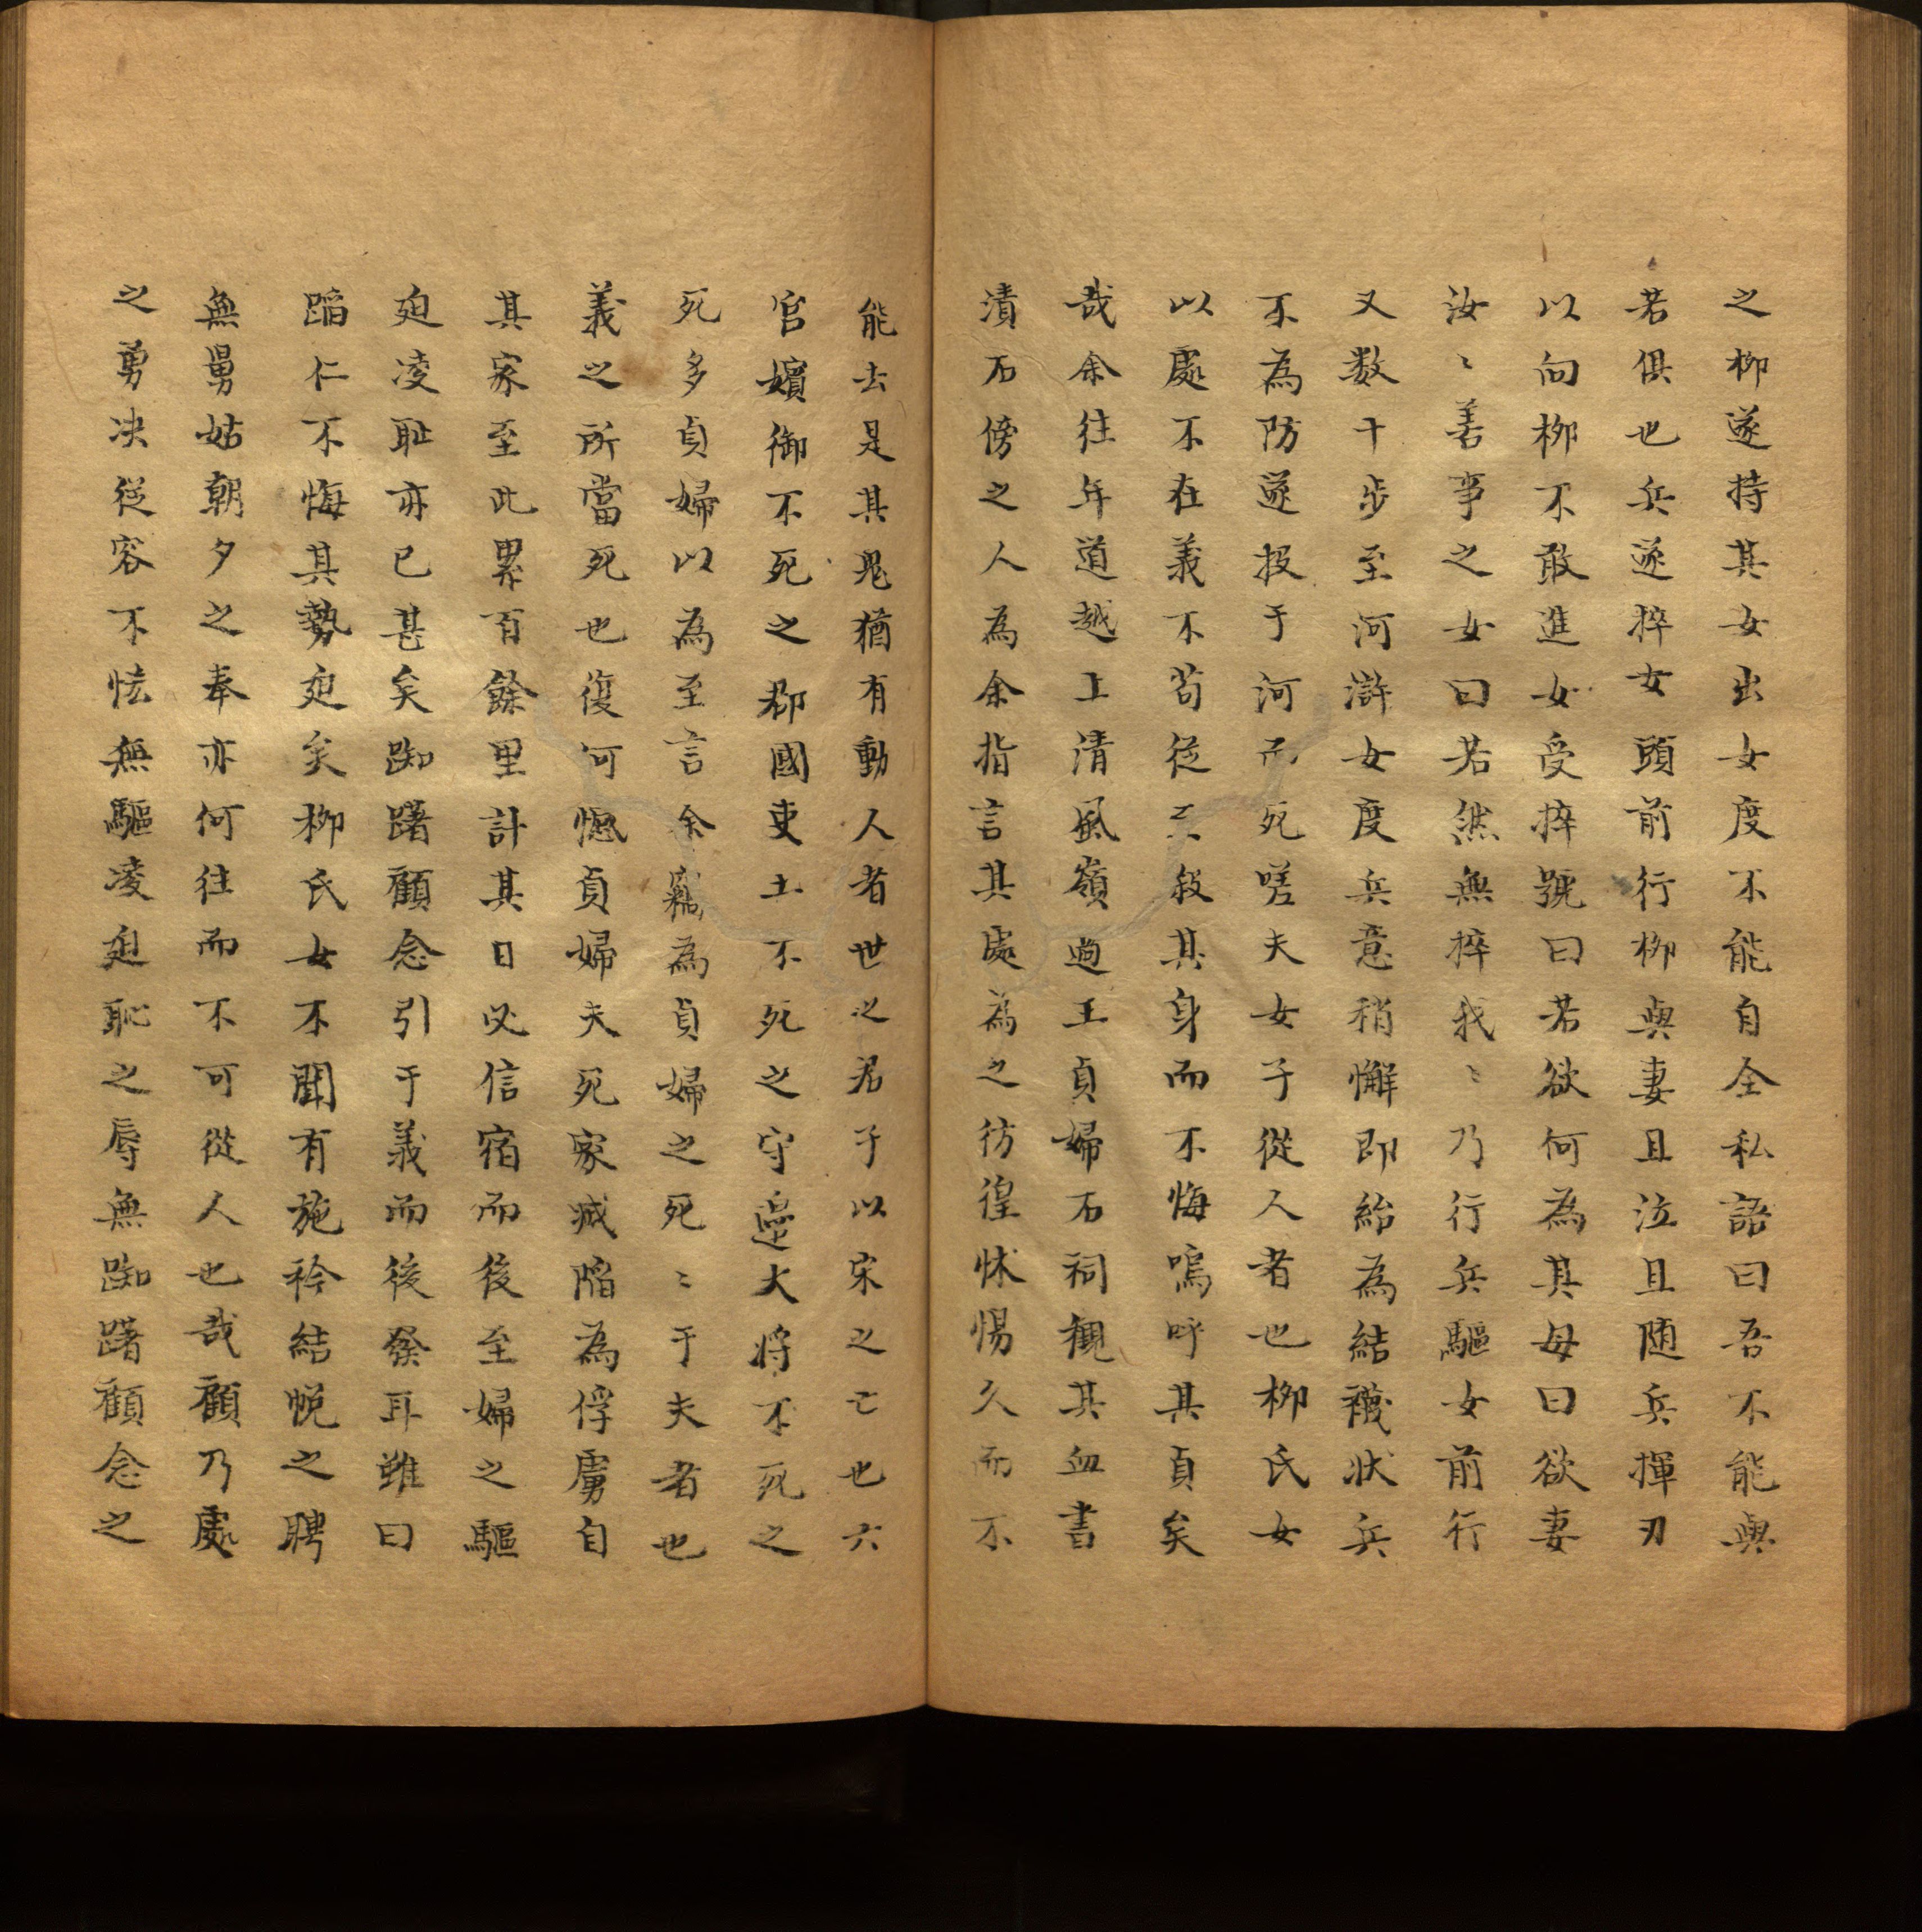 之柳遂持其女出女度不能自全私語曰吾不能與
若俱也兵遂捽女頭前行柳與妻且泣且随兵揮刃
以向柳不敢進女受捽號曰若欲何為其母曰欲妻
汝〻善事之女曰若然無捽我〻乃行兵驅女前行
又数十步至河滸女度兵意稍懈即紿為結襪狀兵
不為防遂投于河而死嗟夫女子從人者也柳氏女
以處不在義不苟從殺其身而不悔嗚呼其貞矣
哉余往年道越上清風嶺過王貞婦石祠觀其血書
漬石傍之人為余指言其處為之彷徨怵惕久而不
能去是其鬼猶有動人者世之君子以宋之亡也六
官嬪御不死之郡國吏士不死之守邊大将不死之
死多貞婦以為至言余竊為貞婦之死〻于夫者也
義之所當死也復何憾貞婦夫死家滅陷為俘虜自
其家至此累百餘里計其日必信宿而後至婦之驅
廹凌耻亦已甚矣踟躇顧念引于義而後發耳雖曰
蹈仁不悔其勢廹矣柳氏女不聞有施衿結帨之聘
無舅姑朝夕之奉亦何往而不可從人也哉顧乃處
之勇决從容不怯無驅凌廹恥之辱無踟躇顧念之